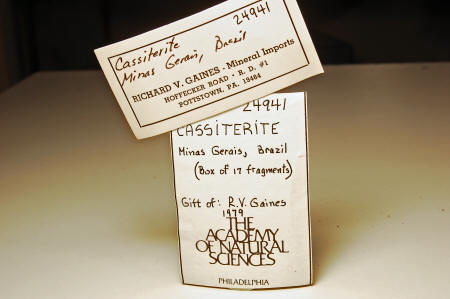 24941
Cassiterite
Minas Gerais, Brazil
RICHARD V. GAINES - Mineral Imports
HOFFECKER ROAD • R. D. #1
POTTSTOWN, PA. 19464
24941
CASSITERITE
Minas Gerais, Brazil
(Box of 17 fragments)
Gift of: R.V. Gaines
1979
THE
ACADEMY
OF NATURAL
SCIENCES
PHILADELPHIA